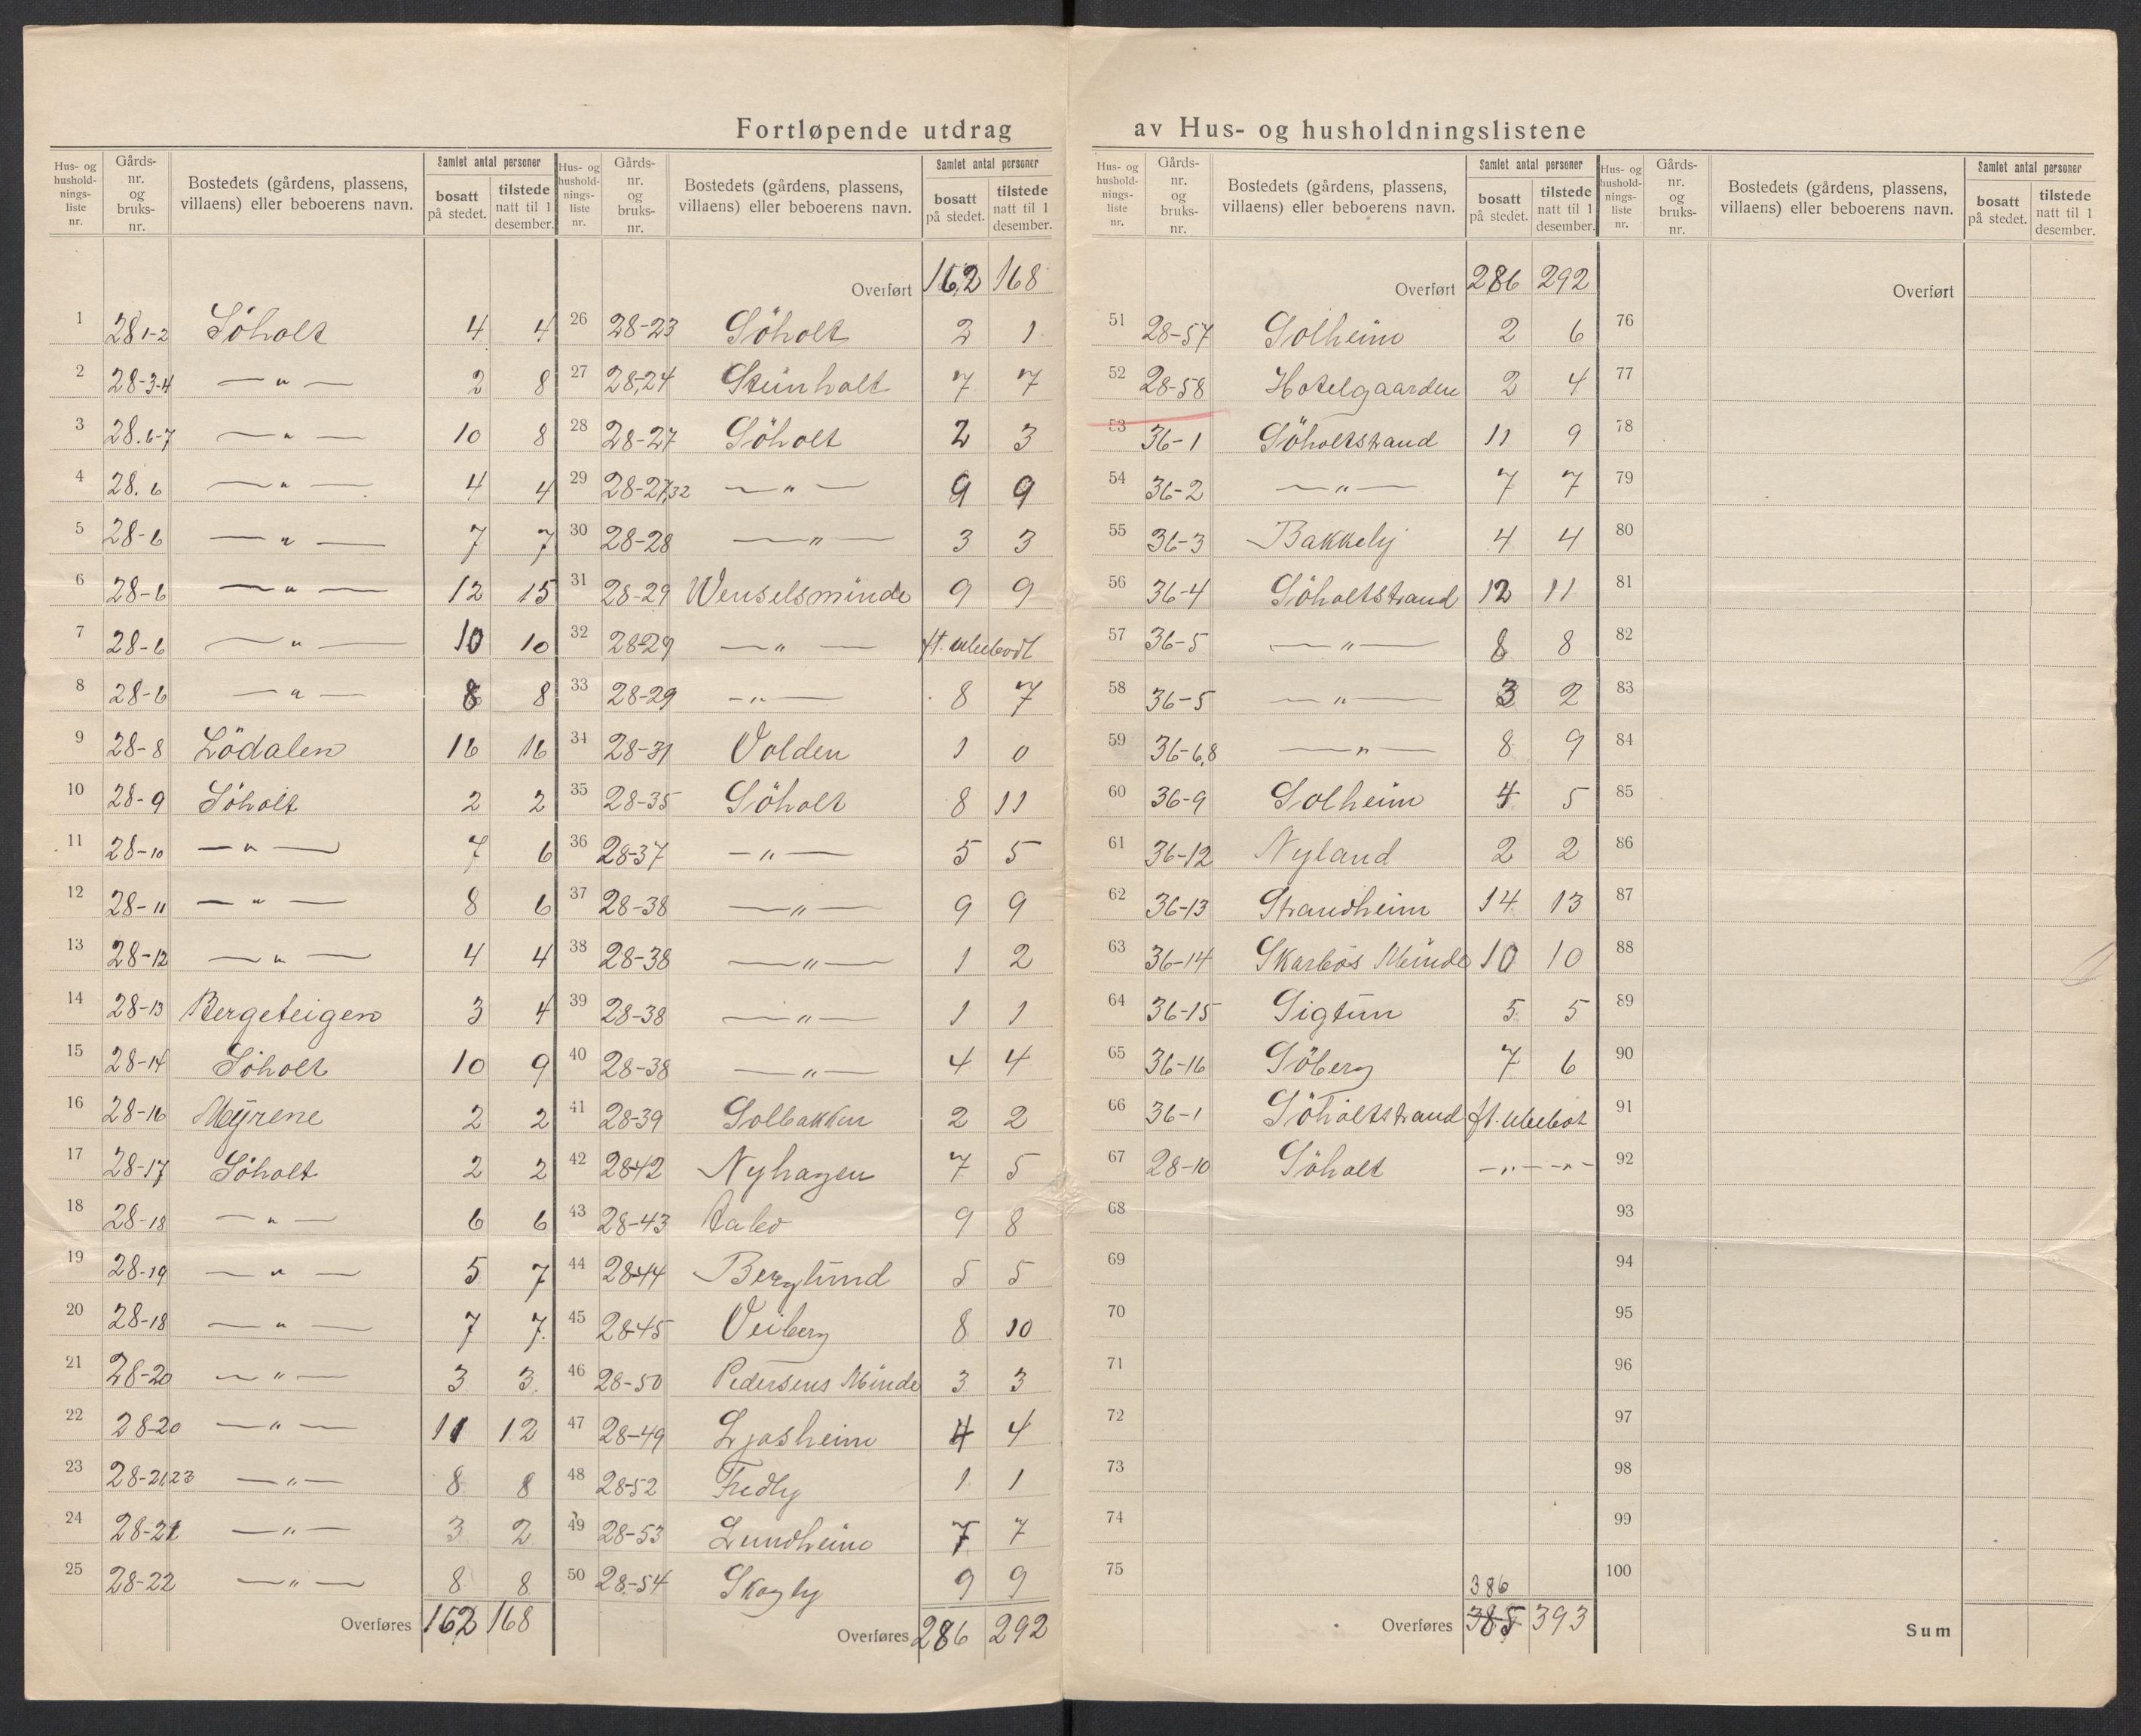 Fortløpende utdrag av Hus- og husholdningslistene
Hus- og husholdnings-liste nr. Gårds-nr. og bruks-nr. Bostedets (gårdens, plassens, villaens) eller beboerens navn. Samlet antal personer bosatt på stedet. tilstede natt til 1 desember.
1 28 1-2 Söholt 4 4
2 28-3-4 —"— 2 8
3 28.6-7 —"— 10 8
4 28.6 —"— 4 4
5 28-6 —"— 7 7
6 28-6 —"— 12 15
7 28-6 —"— 10 10
8 28-6 —"— 8 8
9 28-8 Lödalen 16 16
10 28-9 Söholt 2 2
11 28-10 —"— 7 6
12 28-11 —"— 8 6
13 28-12 —"— 4 4
14 28-13 Bergeteigen 3 4
15 28-14 Söholt 10 9
16 28-16 Myrene 2 2
17 28-17 Söholt 2 2
18 28-18 —"— 6 6
19 28-19 —"— 5 7
20 28-18 —"— 7 7.
21 28-20 —"— 3 3.
22 28-20 —"— 11 12
23 28-21,23 —"— 8 8
24 28-21 —"— 3 2
25 28-22 —"— 8 8
Overføres 162 168
Hus- og hushold-nings-liste nr. Gårds-nr. og bruks-nr. Bostedets (gårdens, plassens, villaens) eller beboerens navn. Samlet antal personer bosatt på stedet. tilstede natt til 1 desember.
Overført 162 168
26 28-23 Söholt 2 1
27 28,24 Steinholt 7 7
28 28-27 Söholt 2 3
29 28-27,32 —"— 9 9
30 28-28 —"— 3 3
31 28-29 Wenselsminde 9 9
32 28-29 —"— ft. ubebodt
33 28-29 —"— 8 7
34 28-31 Volden 1 0
35 28-35 Söholt 8 11
36 28-37 —"— 5 5
37 28-38 —"— 9 9
38 28-38 —"— 1 2
39 28-38 —"— 1 1
40 28-38 —"— 4 4
41 28-39 Solbakken 2 2
42 28-42 Nyhagen 7 5
43 28-43 9 8
44 28-44 Berglund 5 5
45 28-45 Veiberg 8 10
46 28-50 Pedersens Minde 3 3
47 28-49 Ljosheim 4 4
48 28-52 Fredly 1 1
49 28-53 Lundheim 7 7
50 28-54 Skogly 9 9
Overføres 286 292
Hus- og hushold-nings-liste nr. Gårds-nr. og bruks-nr. Bostedets (gårdens, plassens, villaens) eller beboerens navn. Samlet antal personer bosatt på stedet. tilstede natt til 1 desember.
Overført 286 292
51 28-57 Solheim 2 6
52 28-58 Hotelgaarden 2 4
53 36-1 Söholtstrand 11 9
54 36-2 —"— 7 7
55 36-3 Bakkely 4 4
56 36-4 Söholtstrand 12 11
57 36-5 —"— 8 8
58 36-5 —"— 3 2
59 36-6,8 —"— 8 9
60 36-9 Solheim 4 5
61 36-12 Nyland 2 2
62 36-13 Strandheim 14 13
63 36-14 Skarbös Minde 10 10
64 36-15 Sigtun 5 5
65 36-16 Söberg 7 6
66 36-1 Söholtstrand ft. ubebot
67 28-10 Söholt —"— —"—
68
69
70
71
72
73
74
75
386
Overføres 385 393
Hus- og hushold-nings-liste nr. Gårds-nr. og bruks-nr. Bostedets (gårdens, plassens, villaens) eller beboerens navn. Samlet antal personer bosatt på stedet. tilstede natt til 1 desember.
Overført
76
77
78
79
80
81
82
83
84
85
86
87
88
89
90
91
92
93
94
95
96
97
98
99
100
Sum